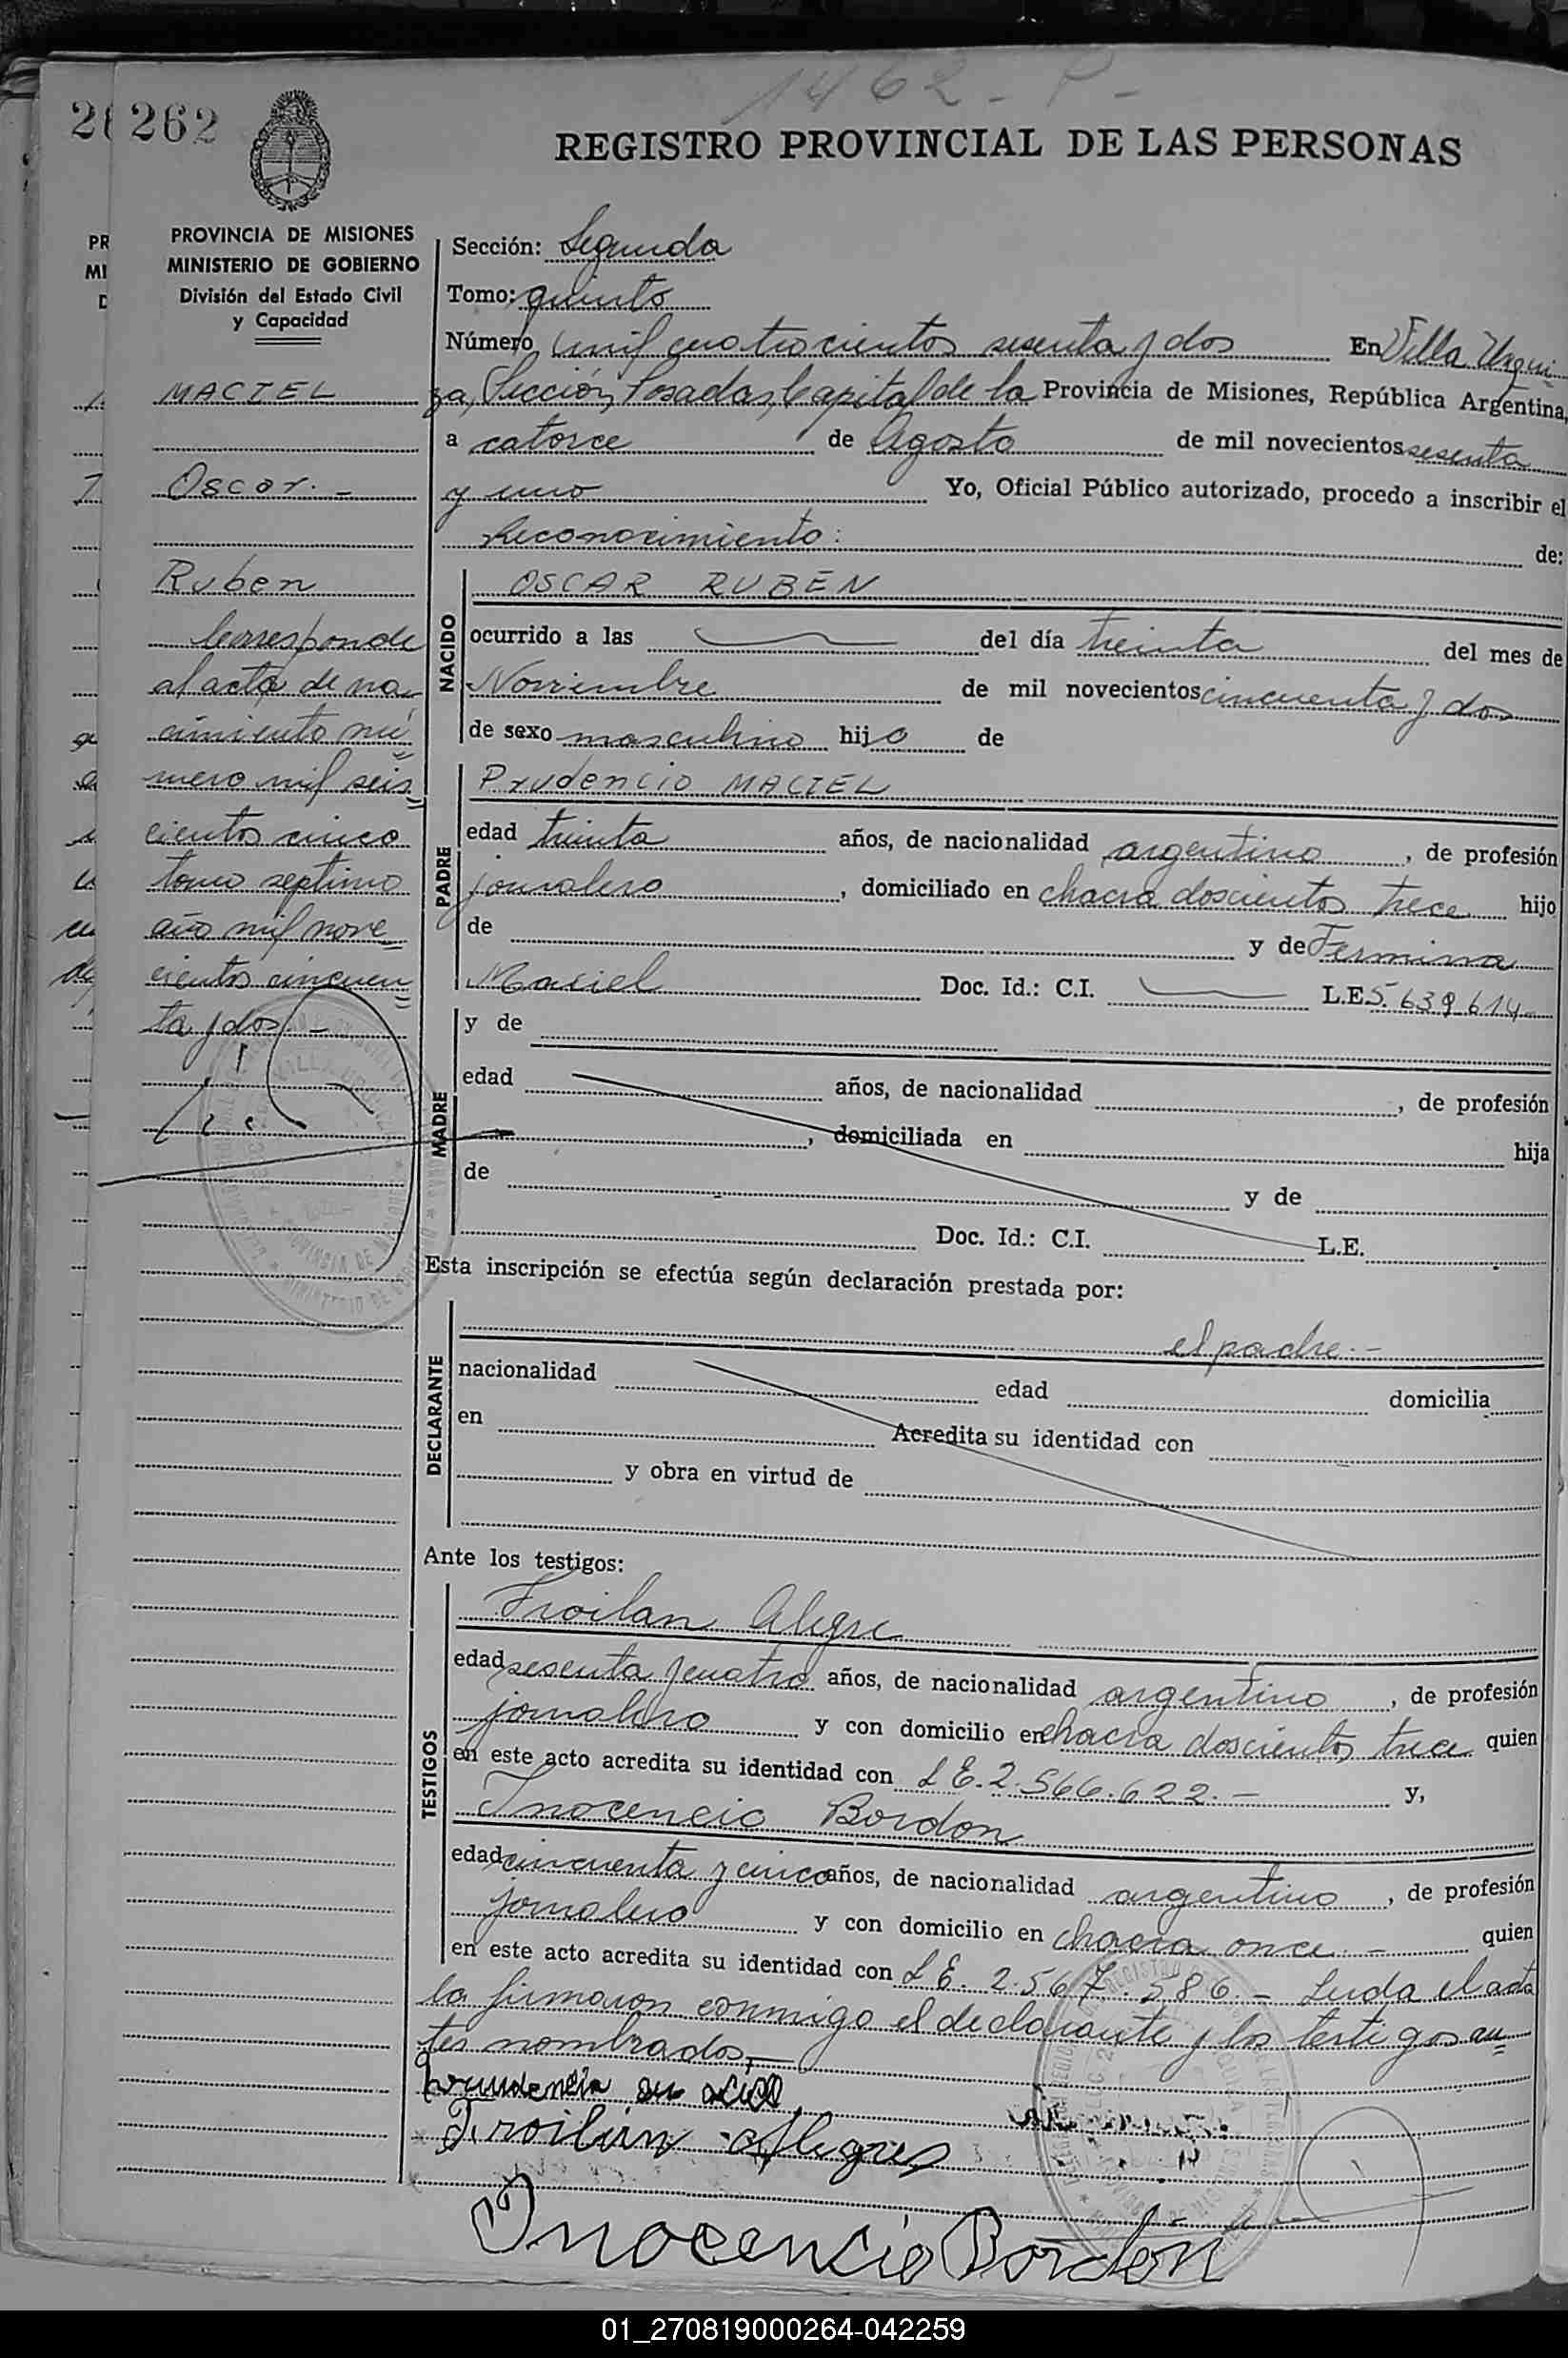 1462 - P -
26 262
REGISTRO PROVINCIAL DE LAS PERSONAS
PROVINCIA DE MISIONES
MINISTERIO DE GOBIERNO
División del Estado Civil
y Capacidad
MACIEL
Oscar. -
Ruben
Corresponde
al acta de na-
cimiento nú=
mero mil seis=
cientos cinco
tomo septimo
año mil nove=
cientos cincuen=
ta y dos. -
Sección: Segunda
Tomo: quinto
Número mil cuatrocientos sesenta y dos En Villa Urqui-
za, Sección, Posadas, Capital de la Provincia de Misiones, República Argentina,
a catorce de Agosto de mil novecientos sesenta
y uno Yo, Oficial Público autorizado, procedo a inscribir el
Reconocimiento: de:
NACIDO
OSCAR RUBÉN
ocurrido a las del día treinta del mes de
Noviembre de mil novecientos cincuenta y dos
de sexo masculino hijo de
PADRE
Prudencio MACIEL
edad treinta años, de nacionalidad argentino, de profesión
jornalero, domiciliado en chacra doscientos trece hijo
de y de Fermina
Maciel Doc. Id.: C.I. L.E. 5.639.614-
MADRE
y de
edad años, de nacionalidad , de profesión
, domiciliada en hija
de y de
Doc. Id.: C.I. L.E.
Esta inscripción se efectúa según declaración prestada por:
DECLARANTE
el padre.-
nacionalidad edad domicilia
en Acredita su identidad con
y obra en virtud de
Ante los testigos:
TESTIGOS
Froilan Alegre
edad sesenta y cuatro años, de nacionalidad argentino, de profesión
jornalero y con domicilio en chacra doscientos trece quien
en este acto acredita su identidad con L E. 2.566.622.- y,
Inocencio Bordon
edad cincuenta y cinco años, de nacionalidad argentino, de profesión
jornalero y con domicilio en chacra once. - quien
en este acto acredita su identidad con L E. 2.567.586.- Leida el acta
la firmaron conmigo el declarante y los testigos an=
tes nombrados.-
Froilan Alegre
Inocencio Bordon
01_270819000264-042259